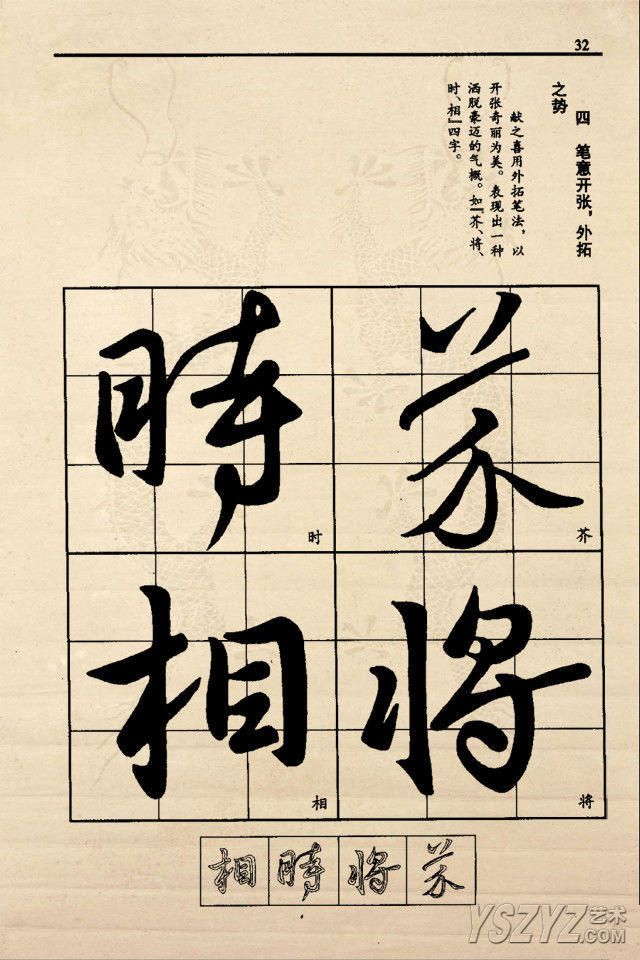 32
四 笔意开张，外拓
之势
献之喜用外拓笔法，以
开张奇丽为美。表现出一种
洒脱豪迈的气概。如『芥、将、
时、相』四字。
芥
芥
將
将
時
时
相
相
相時將芥
YSZYZ艺术
.COM